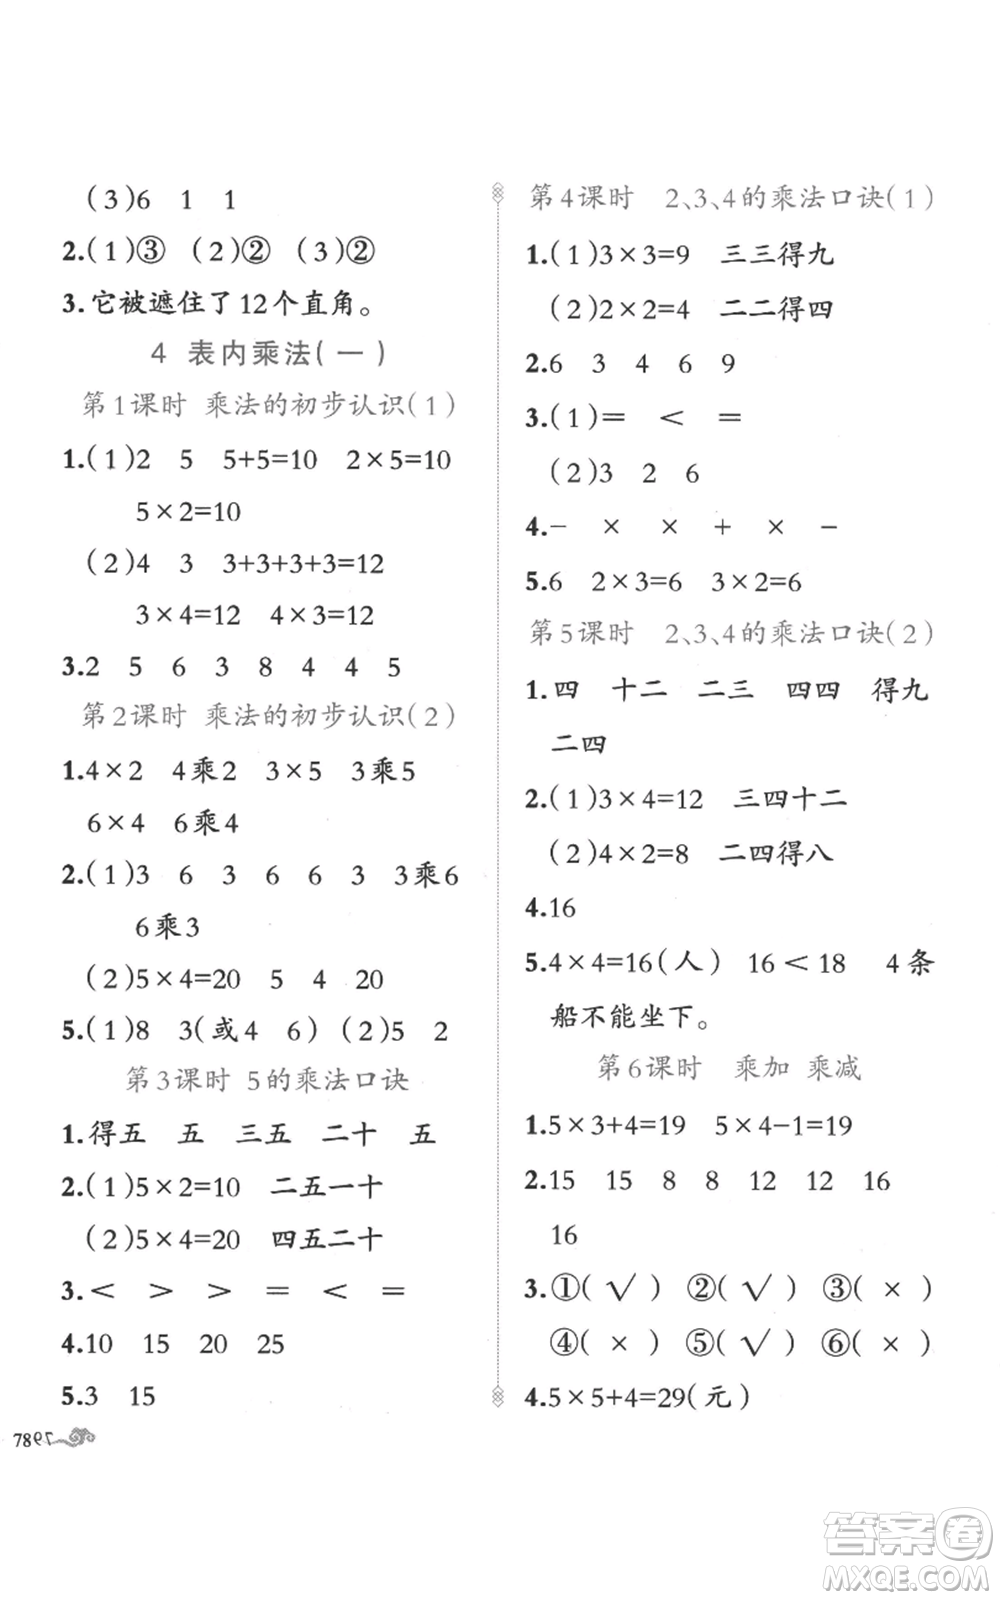 (3)6 1 1
2.(1)③ (2)② (3)②
3.它被遮住了12个直角。
4 表内乘法(一)
第1课时 乘法的初步认识(1)
1.(1)2 5 5+5=10 2×5=10
5×2=10
(2)4 3 3+3+3+3=12
3×4=12 4×3=12
3.2 5 6 3 8 4 4 5
第2课时 乘法的初步认识(2)
1.4×2 4乘2 3×5 3乘5
6×4 6乘4
2.(1)3 6 3 6 6 3 3乘6
6乘3
(2)5×4=20 5 4 20
5.(1)8 3(或4 6) (2)5 2
第3课时 5的乘法口诀
1.得五 五 三五 二十 五
2.(1)5×2=10 二五一十
(2)5×4=20 四五二十
3.< > > = < =
4.10 15 20 25
5.3 15
78
第4课时 2、3、4的乘法口诀(1)
1.(1)3×3=9 三三得九
(2)2×2=4 二二得四
2.6 3 4 6 9
3.(1)= < =
(2)3 2 6
4.− × × + × −
5.6 2×3=6 3×2=6
第5课时 2、3、4的乘法口诀(2)
1.四 十二 二三 四四 得九
二四
2.(1)3×4=12 三四十二
(2)4×2=8 二四得八
4.16
5.4×4=16(人) 16<18 4条
船不能坐下。
第6课时 乘加 乘减
1.5×3+4=19 5×4−1=19
2.15 15 8 8 12 12 16
16
3.①(√) ②(√) ③(×)
④(×) ⑤(√) ⑥(×)
4.5×5+4=29(元)
答案卷
MXQE.COM